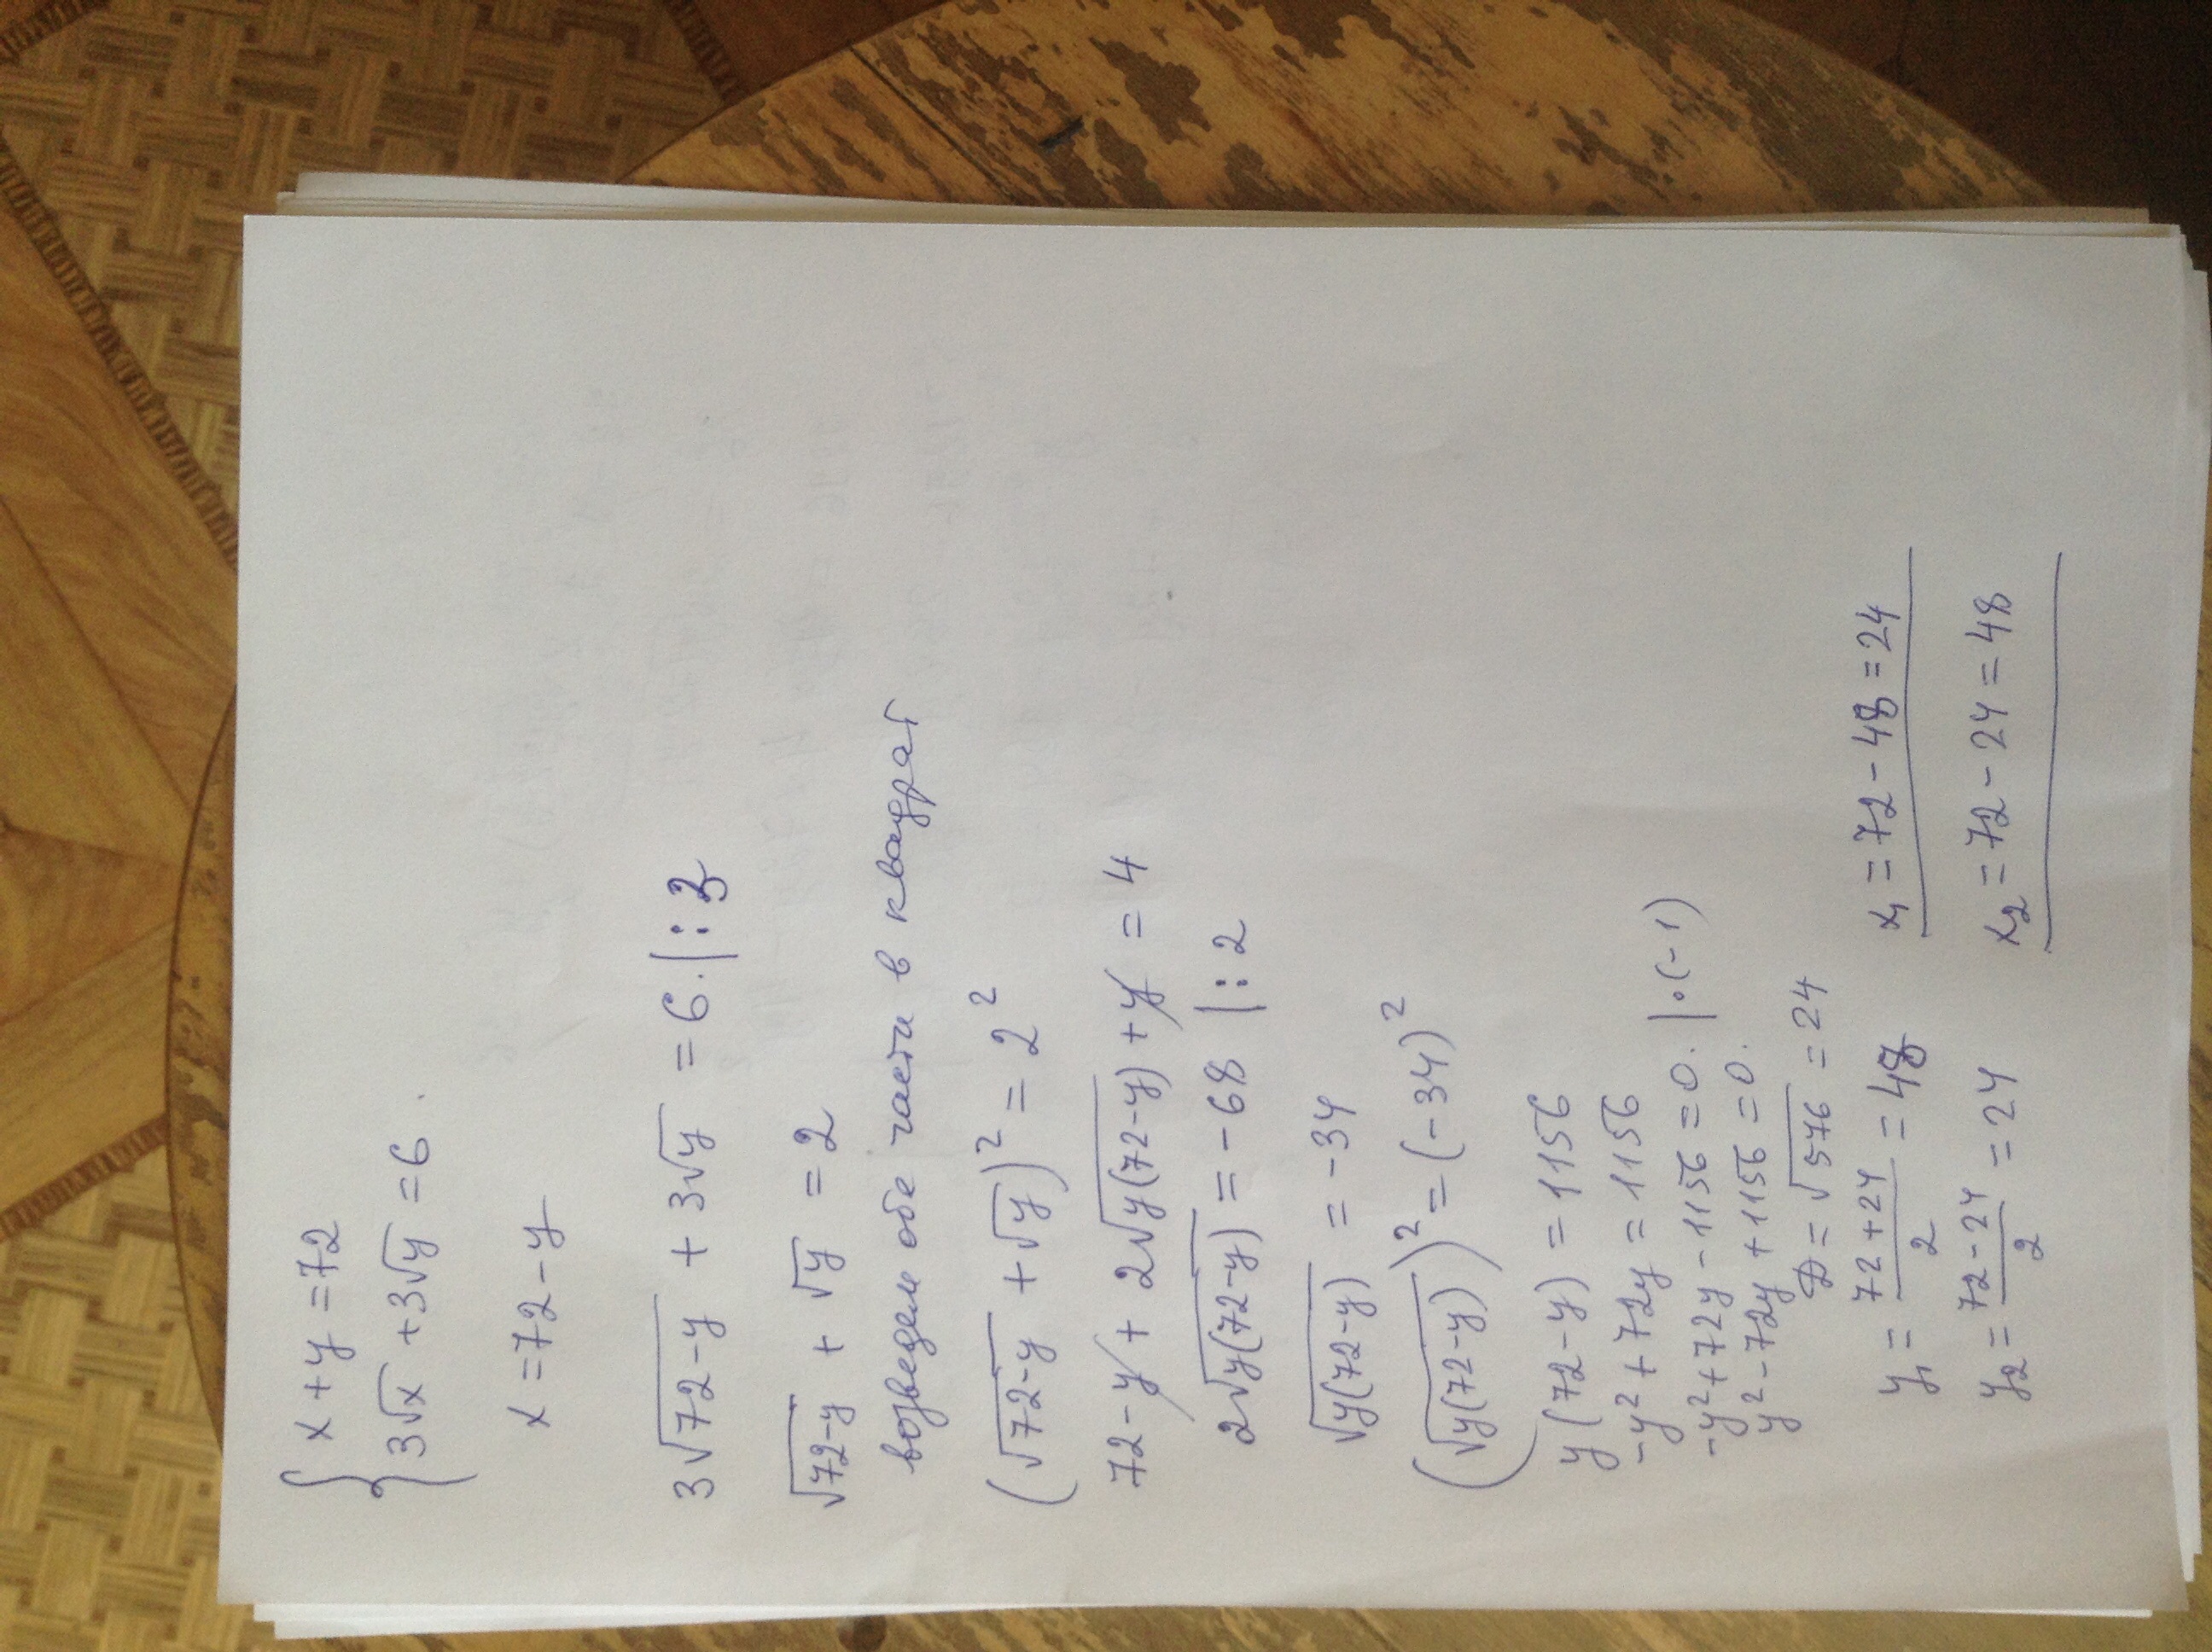 { x + y = 72
3√x + 3√y = 6.
x = 72 - y
3√72-y + 3√y = 6. | : 3
√72-y + √y = 2
возведем обе части в квадрат
(√72-y + √y)² = 2²
72 - y + 2√y(72-y) + y = 4
2√y(72-y) = -68 | : 2
√y(72-y) = -34
(√y(72-y))² = (-34)²
y(72-y) = 1156
-y² + 72y = 1156
-y² + 72y - 1156 = 0. | ·(-1)
y² - 72y + 1156 = 0.
D = √576 = 24
y₁ = (72+24)/2 = 48 x₁ = 72 - 48 = 24
y₂ = (72-24)/2 = 24 x₂ = 72 - 24 = 48